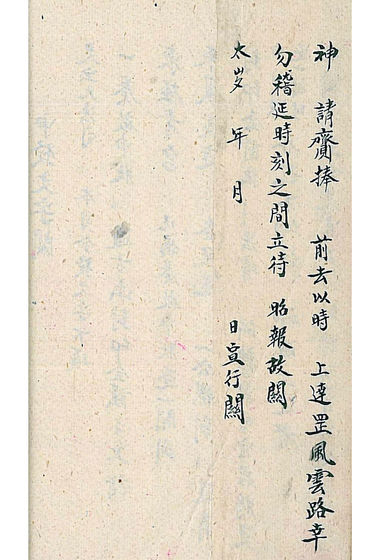 神 請齎捧 前去以時 上達罡風雲路幸
勿稽延時刻之間立待 昭報故關
太岁 年 月 日宣行關